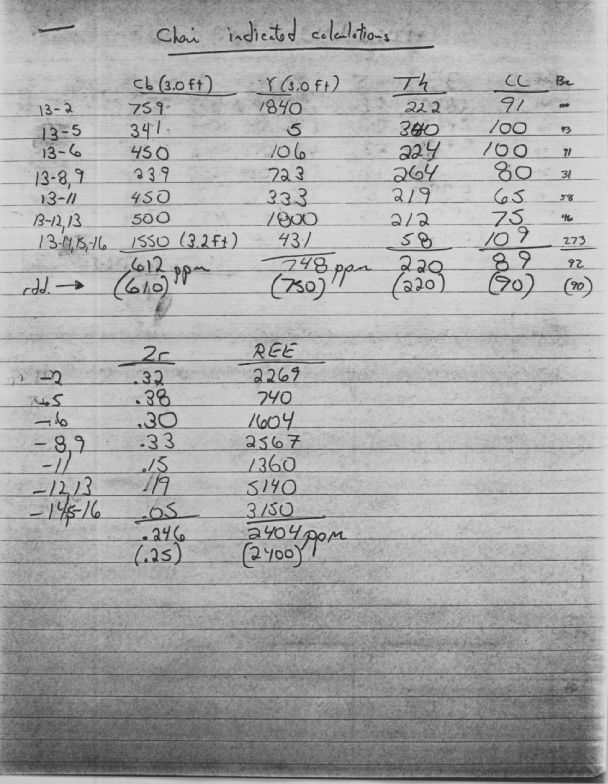 Chai indicated calculations
Cb (3.0 ft) Y (3.0 ft) Th CC Be
13-2 759 1840 222 91
13-5 341 5 380 100 93
13-6 450 106 224 100 71
13-8,9 239 723 264 80 31
13-11 450 333 219 65 58
13-12,13 500 1800 212 75 96
13-14,15,-16 1550 (3.2 ft) 431 58 109 273
612 ppm 748 ppm 220 89 92
rdd. → (610) (750) (220) (90) (90)
Zr REE
-2 .32 2269
-5 .38 740
-6 .30 1604
-8,9 .33 2567
-11 .15 1360
-12,13 .19 5140
-14,15-16 .05 3150
.246 2404 ppm
(.25) (2400)